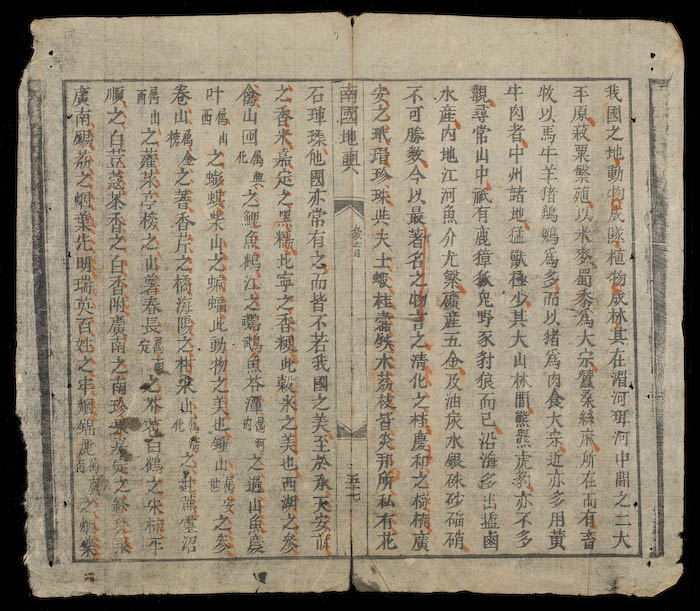 我國之地動物成隊植物成林其在湄河珥河中間之二大
平原菽粟繁殖以米麥蜀黍爲大宗蠶桑絲麻所在而有畜
牧以馬牛羊猪鷄鴨爲多而以猪爲肉食大宗近亦多用黃
牛肉者中州諸地猛獸極少其大山林間熊羆虎豹亦不多
觀尋常山中祇有鹿獐狐兔野豕豺狼而已沿海多出鹽鹵
水産內地江河魚介尤繁礦産五金及油炭水銀硃砂磠硝
不可勝數今以最著名之物言之清化之桂慶和之椅楠廣
安之玳瑁珍珠與夫土蝦桂蠹鉄木荔枝皆炎邦所私有花
南國地輿
五十七
石璉珠他國亦常有之而皆不若我國之美至於承天安
之香米嘉定之黑糯北寧之香稉此穀米之美也西湖之參
禽山回屬興化之鯉魚鶴江之鸚鵡魚苔潭屬河的之過山魚慶
叶屬山西之蟛蜞柴山之蝙蝠此動物之美也鍾山屬安世之參
卷山屬金榜之薯香岸之橘海陽之柑柴山屬化之靈沼
屬山西之蘿菜亭榜之山薯春長屬安之芥白鶴之朱柿平
順之白荳蔻茶香之白香附廣南之南珍嘉定之
廣南錫荔之烟葉先明瑞英百姓之牢烟錦鹿之烟